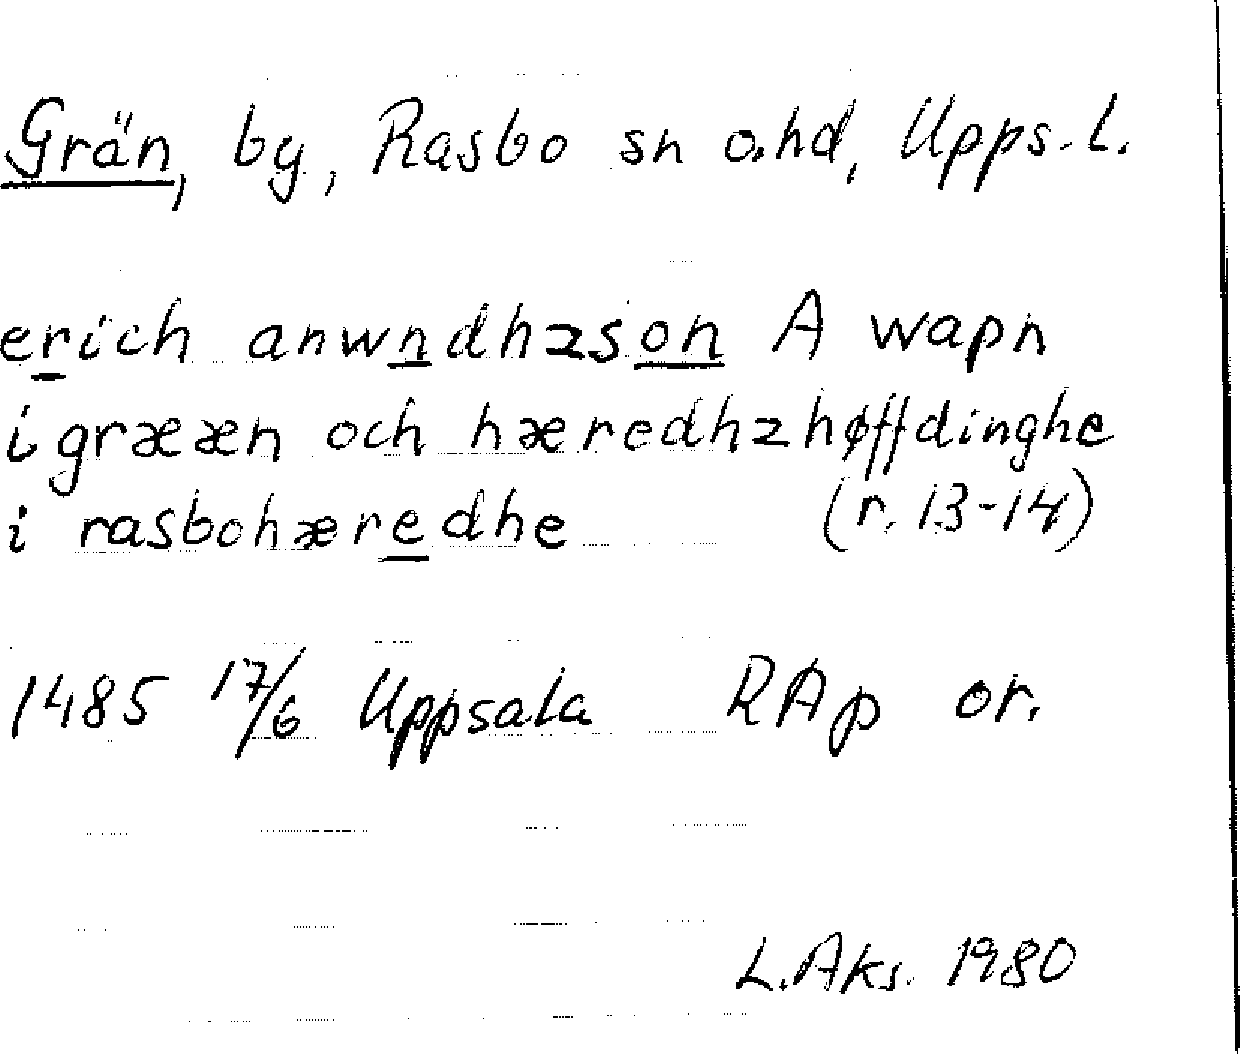 Grän, by, Rasbo sn o. hd, Upps. L.
erich anwndhzson A wapn
i grææn och hæredhzhøffdinghe
i rasbohæredhe (r. 13-14)
1485 17/6 Uppsala RAp or.
L. Aks. 1980